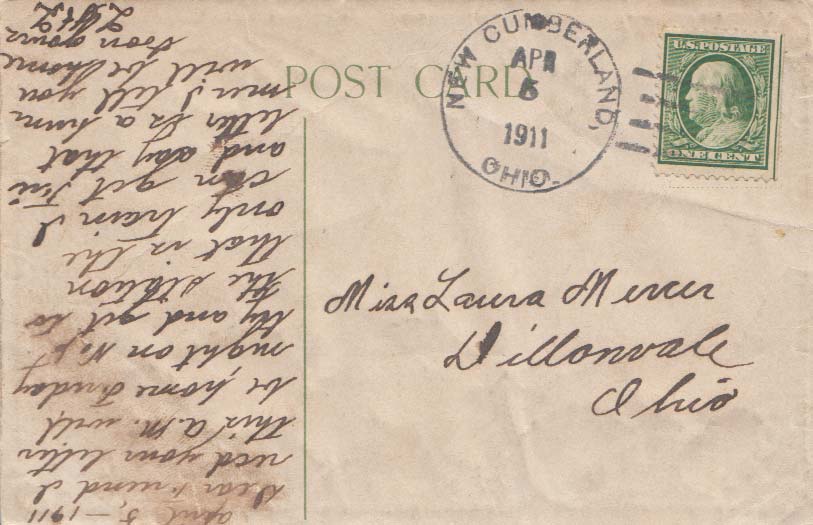 POST CARD
NEW CUMBERLAND,
APR
5
1911
OHIO.
U.S. POSTAGE
ONE CENT
Miss Laura Mercer
Dillonvale
Ohio
april 5,—1911
Dear Friend I
recd your letter
this a.m. will
be home Friday
night on No
try and get to
the station
that is the
only train I
can get Fri
and day that
letter is a hum
mer I tell you
will be home
soon yours